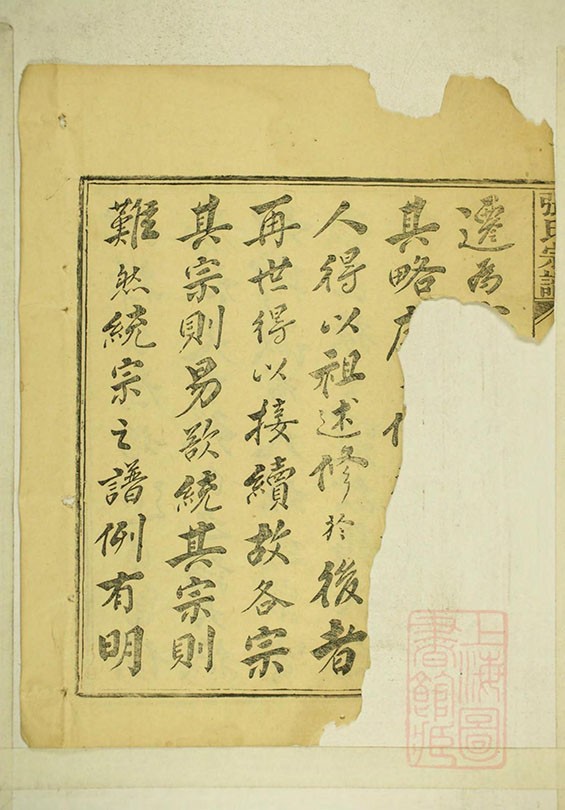 張氏宗譜
遷為
其略
人得以祖述修於後者
再世得以接續故各宗
其宗則易欲統其宗則
難然統宗之譜例有明
上海圖
書館藏